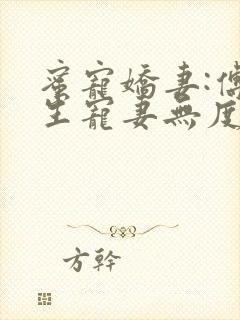 蜜寵嬌妻:傅
生寵妻無度
方幹